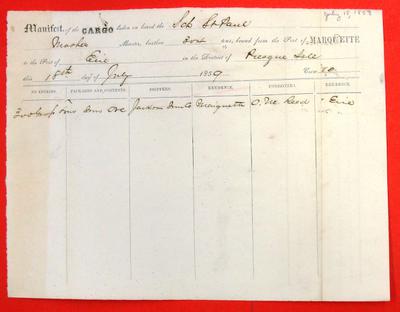 July 18, 1859
Manifest of the CARGO taken on board the Sch St Paul
Mosher Master, burthen tons, bound from the Port of MARQUETTE
to the Port of Erie in the District of Presque Isle
this 18th day of July 1859
NO. ENTRIES. PACKAGES AND CONTENTS. SHIPPERS. RESIDENCE. CONSIGNEES. RESIDENCE.
tons Iron Ore Jackson Iron Co Marquette C. M. Reed Erie